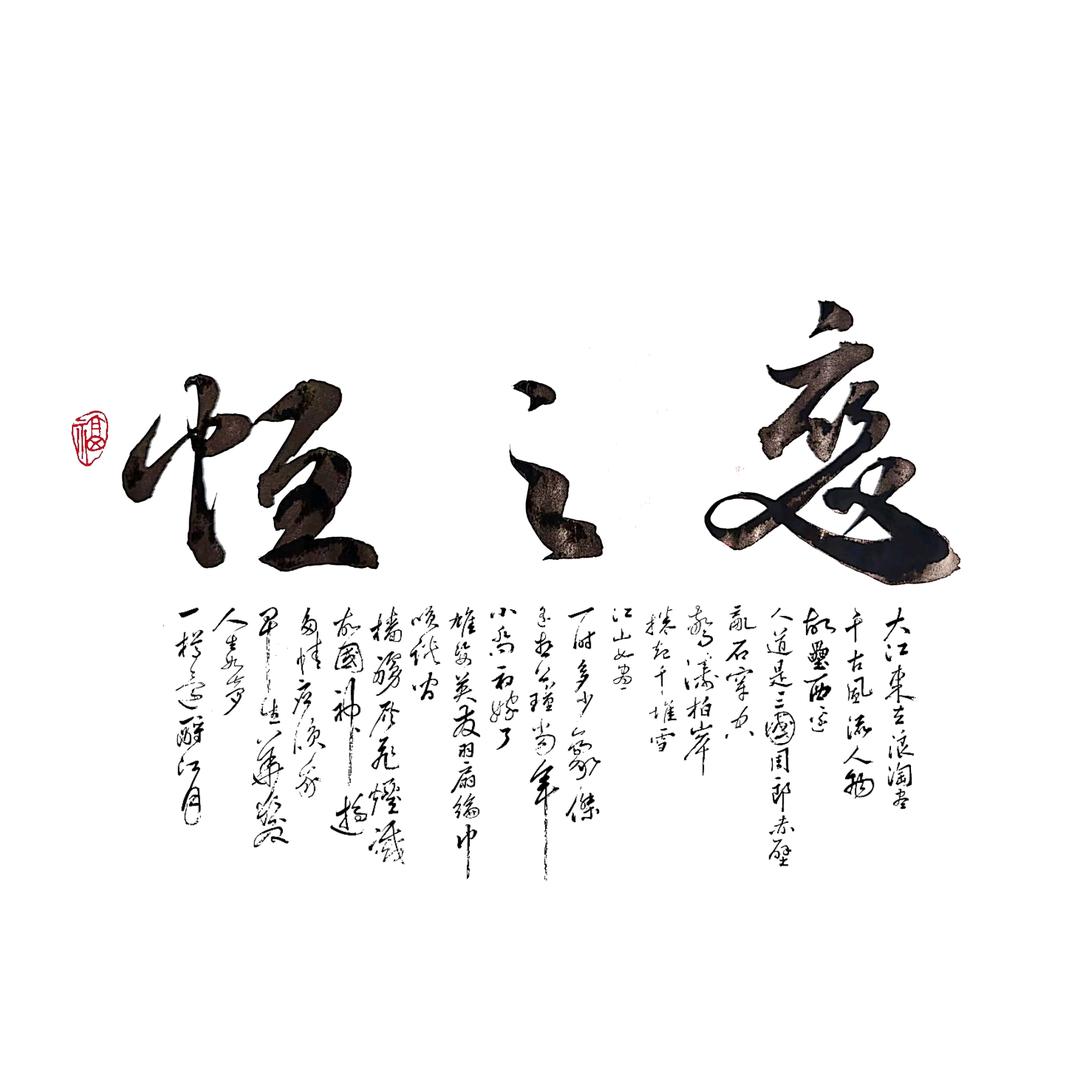 之恒
大江東去浪淘盡
千古風流人物
故壘西邊
人道是三國周郎赤壁
亂石穿空
驚濤拍岸
捲起千堆雪
江山如畫
一時多少豪傑
遥想公瑾當年
小喬初嫁了
雄姿英發羽扇綸巾
談間
檣艣灰飛煙滅
故國神遊
多情應我
早生華髮
人生如夢
一樽還酹江月
福